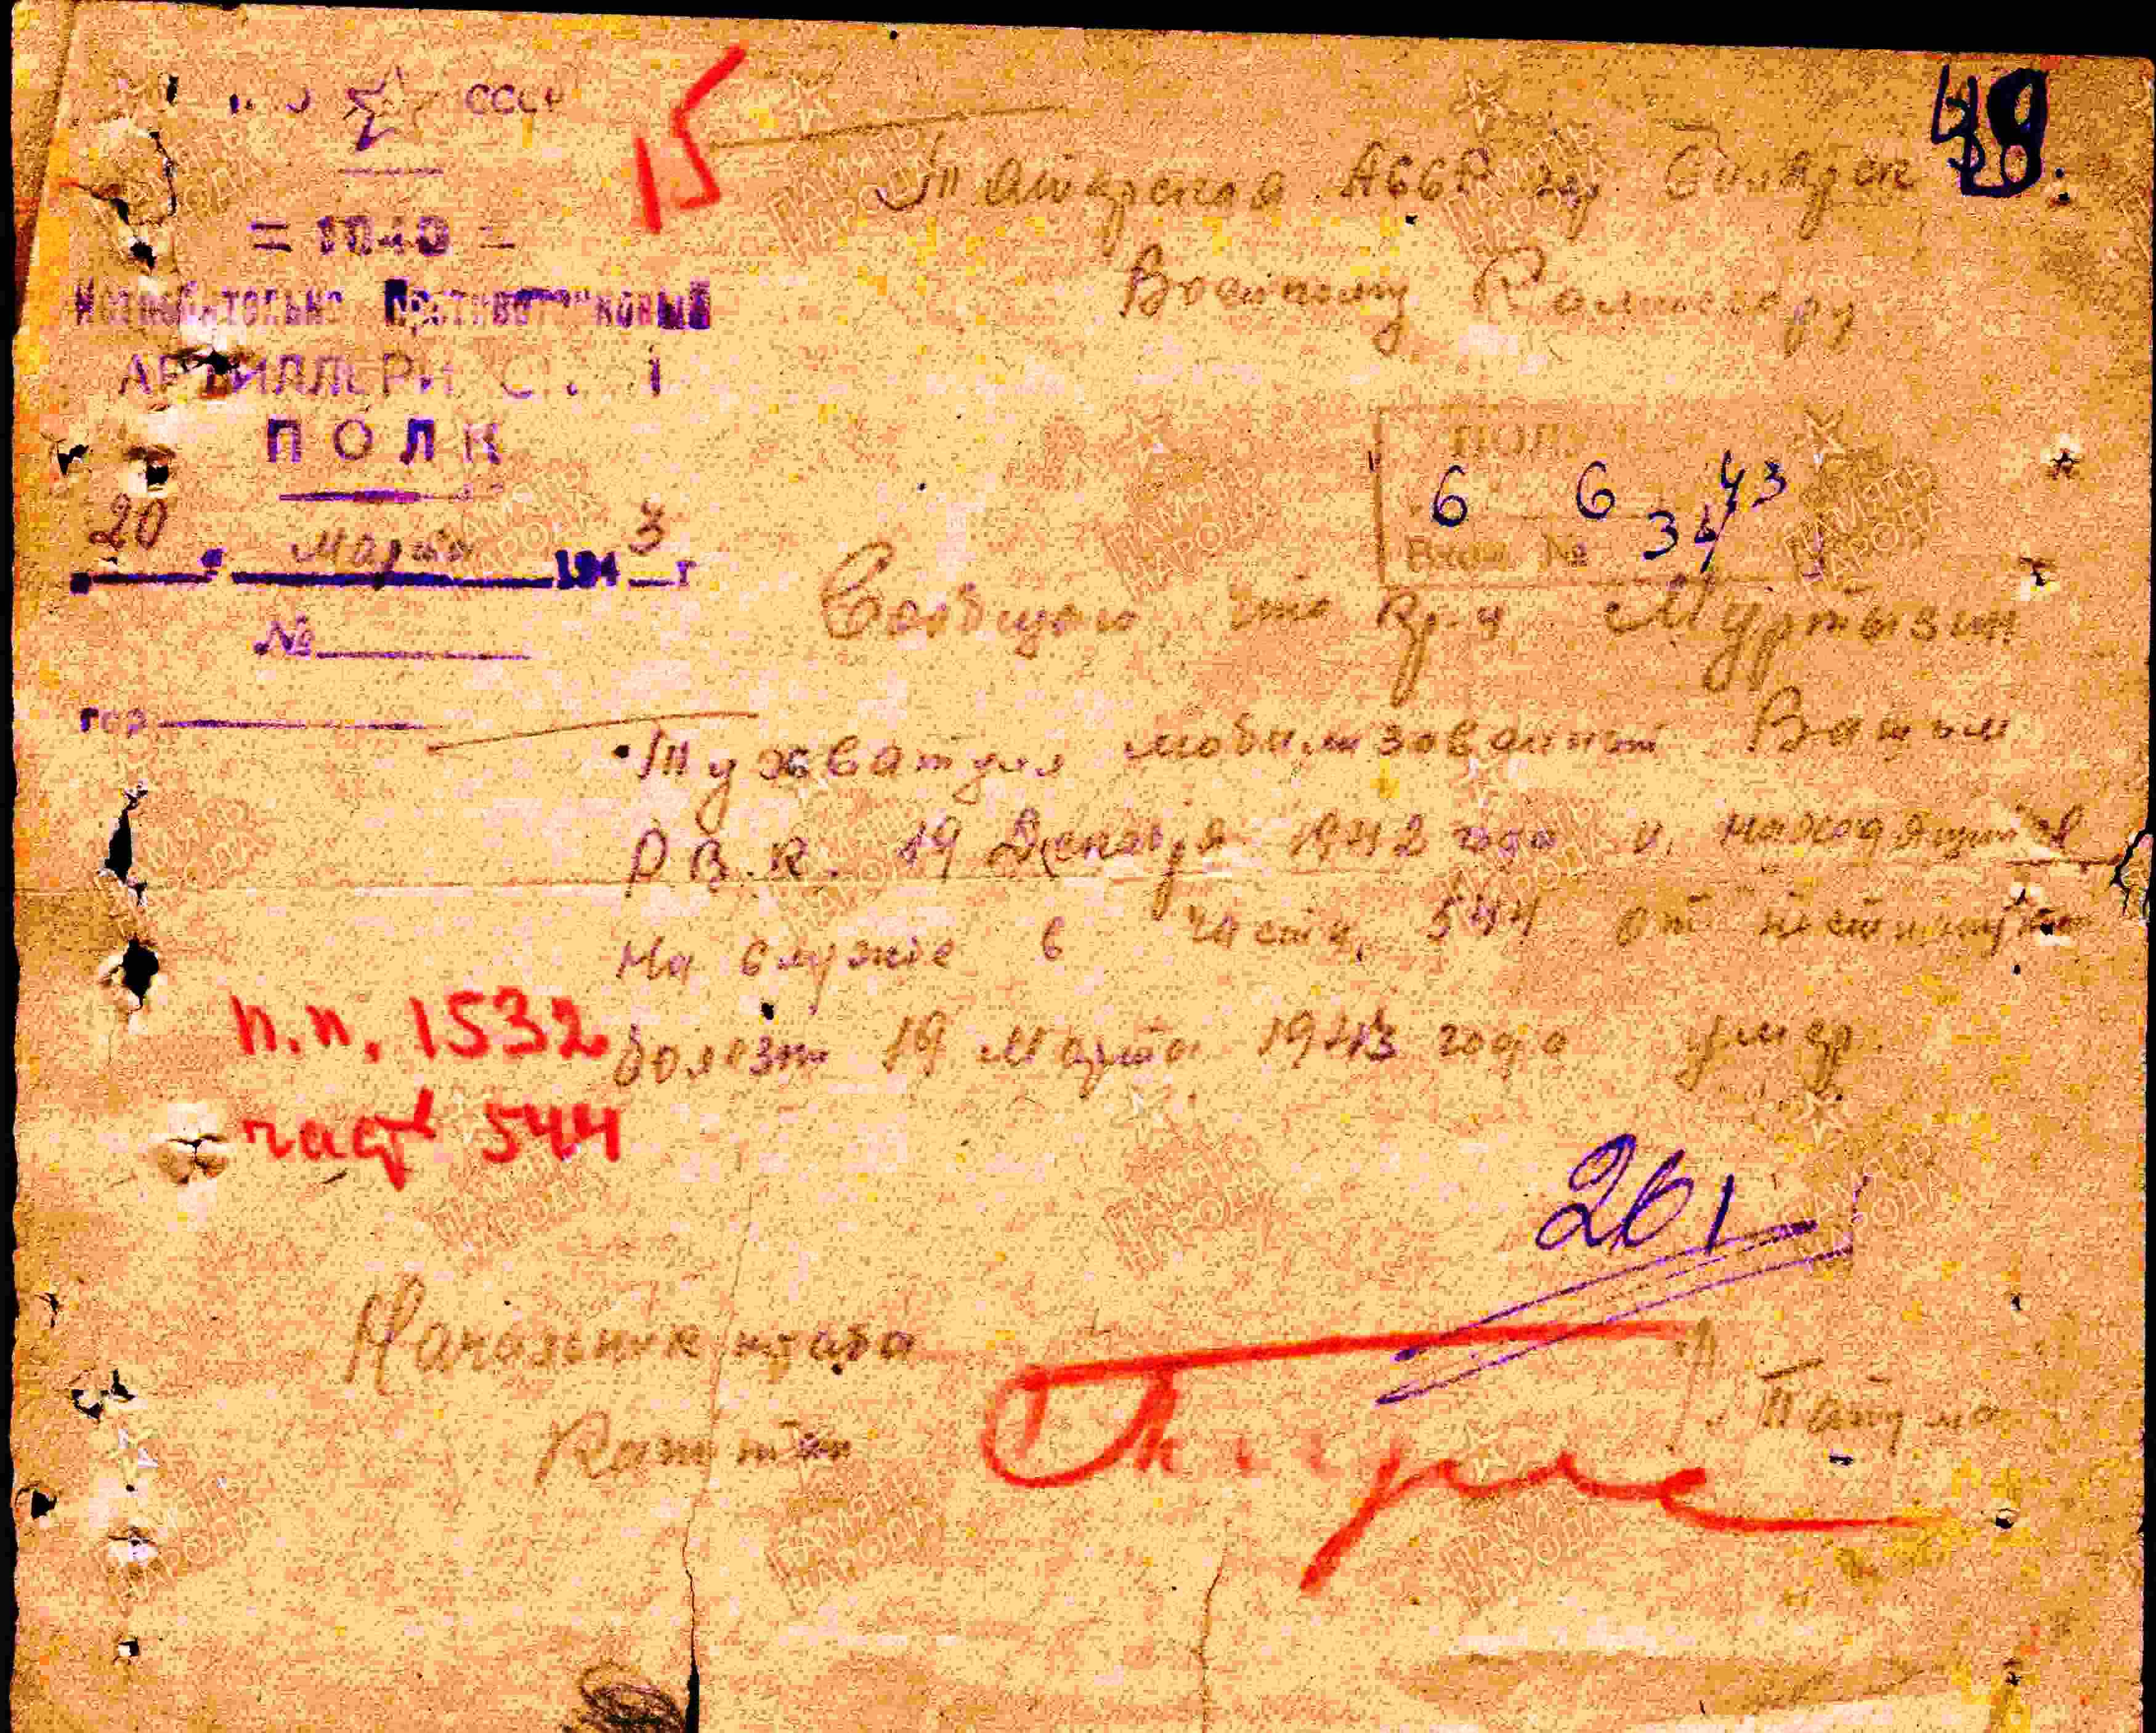 СССР
15
= 1040 =
Истребительно Противотанковый
АРТИЛЛЕРИ
ПОЛК
20 Марта 1943 г
№
гор
Татарская АССР
Военному Комиссару
ПОЛ
6 6 43
Вход №
Сообщаю, что Кр-ц Муртызин
Тухватула мобилизованный Вашим
Р.В.К. 19 Декабря 1942 года и находящийся
На службе в части 544 от
болезни 19 Марта 1943 года умер.
п.п. 1532
часть 544
261
Начальник штаба
Капитан
ПАМЯТЬ НАРОДА